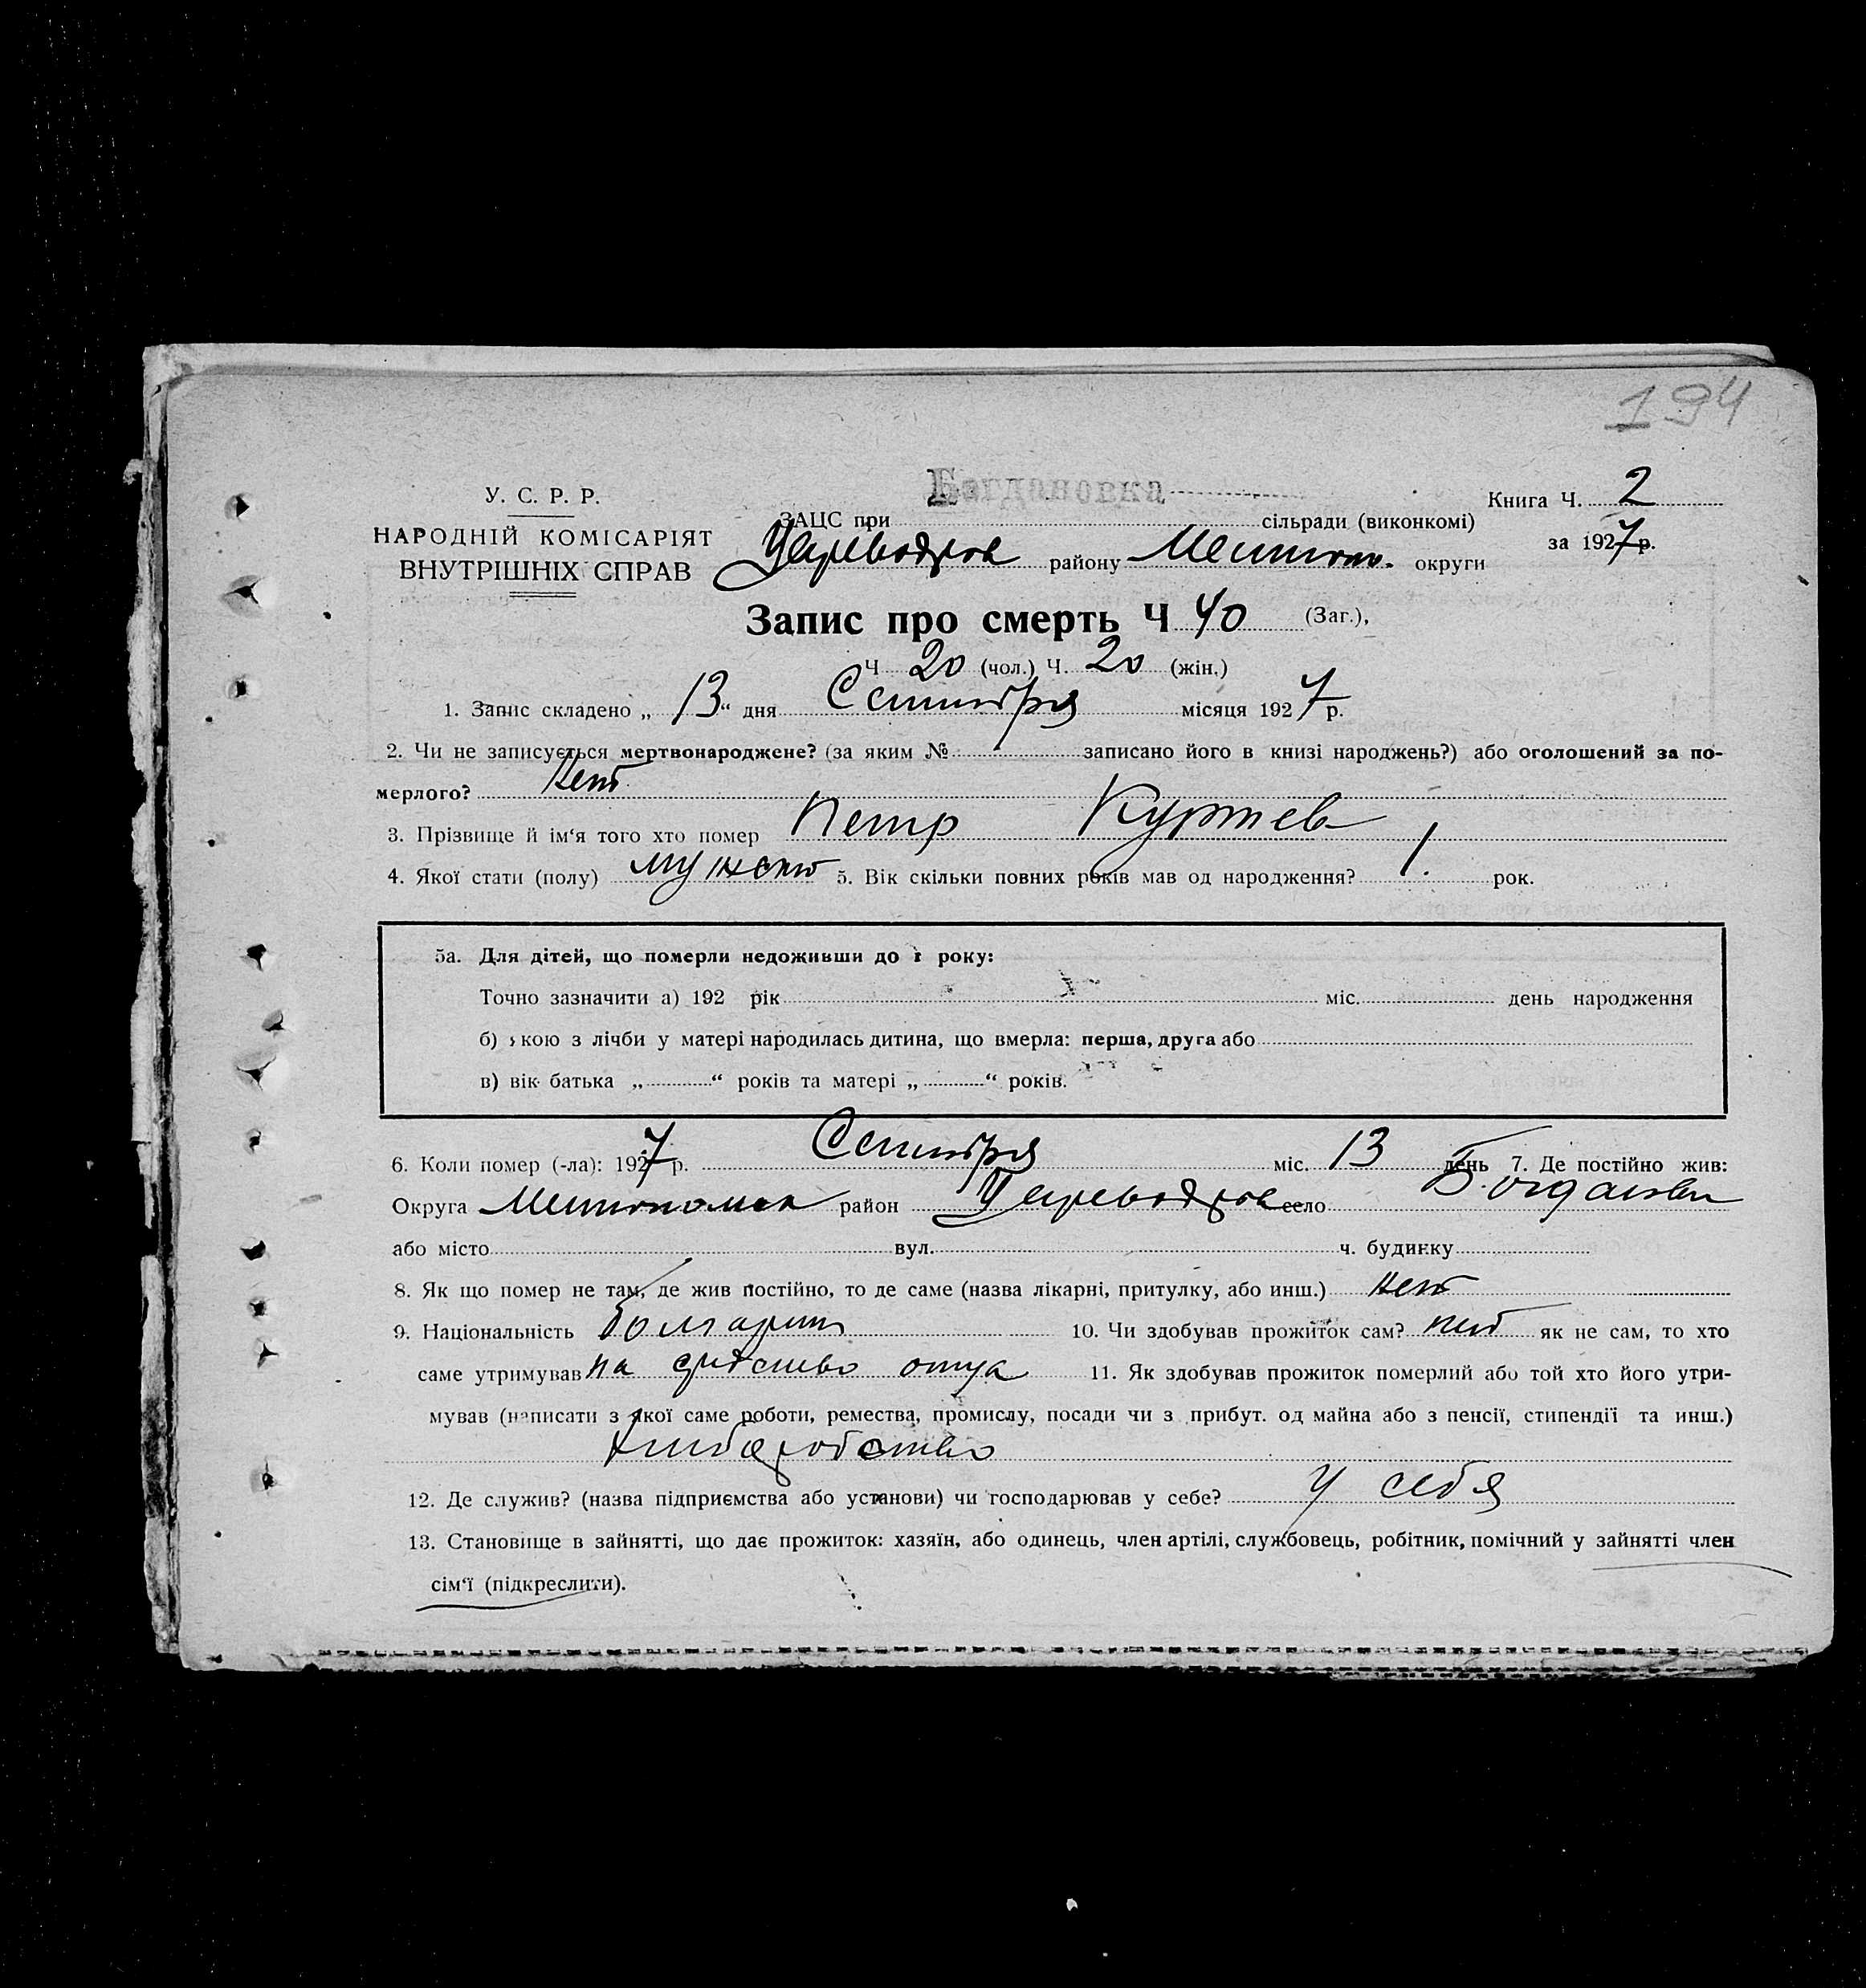 194
У. С. Р. Р.
НАРОДНІЙ КОМІСАРІЯТ
ВНУТРІШНІХ СПРАВ
Богдановка
ЗАЦС при сільради (виконкомі)
району Мелитоп. округи
Книга Ч. 2
за 1927 р.
Запис про смерть Ч 40 (Заг.),
Ч 20 (чол.) Ч. 20 (жін.)
1. Запис складено „ 13 “ дня Сентября місяця 1927 р.
2. Чи не записується мертвонароджене? (за яким № записано його в книзі народжень?) або оголошений за по-
мерлого? Нет
3. Прізвище й ім‘я того хто помер Петр Куртев
4. Якої стати (полу) 5. Вік скільки повних років мав од народження? 1. рок.
5а. Для дітей, що померли недоживши до 1 року:
Точно зазначити а) 192 рік міс. день народження
б) якою з лічби у матері народилась дитина, що вмерла: перша, друга або
в) вік батька „ “ років та матері „ “ років.
6. Коли помер (-ла): 1927 р. Сентября міс. 13 день 7. Де постійно жив:
Округа район село
або місто вул. ч. будинку
8. Як що помер не там, де жив постійно, то де саме (назва лікарні, притулку, або инш.) нет
9. Національність болгарин 10. Чи здобував прожиток сам? нет як не сам, то хто
саме утримував на средство отца 11. Як здобував прожиток померлий або той хто його утри-
мував (написати з якої саме роботи, ремества, промислу, посади чи з прибут. од майна або з пенсії, стипендії та инш.)
12. Де служив? (назва підприємства або установи) чи господарював у себе? у себя
13. Становище в зайнятті, що дає прожиток: хазяїн, або одинець, член артілі, службовець, робітник, помічний у зайнятті член
сім‘ї (підкреслити).